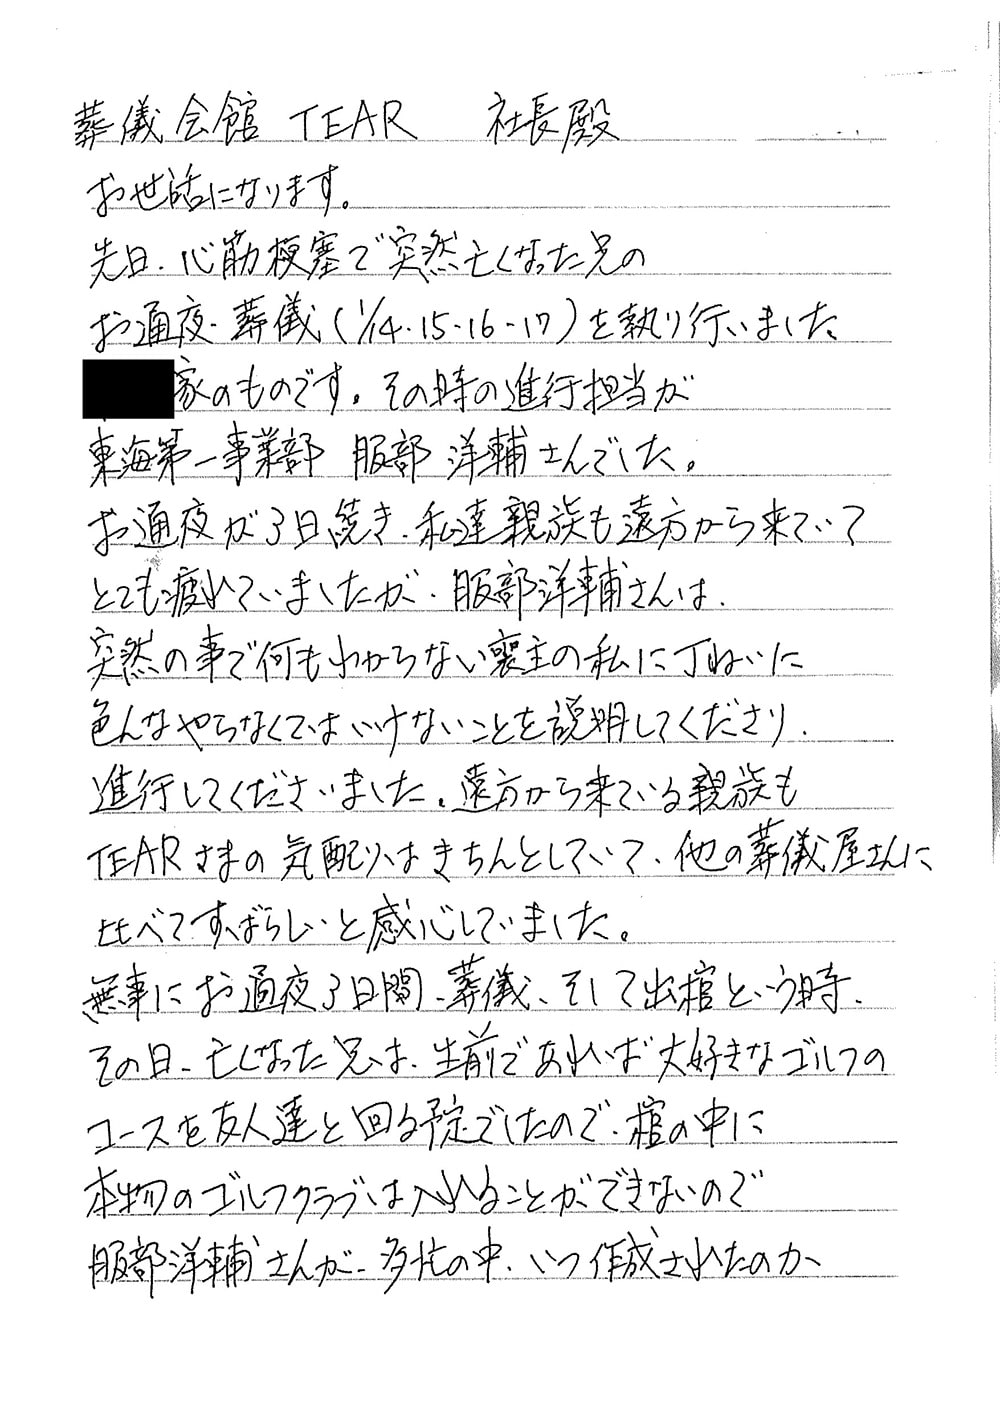 葬儀会館 TEAR 社長殿
お世話になります。
先日、心筋梗塞で突然亡くなった兄の
お通夜・葬儀(1/14・15・16・17)を執り行いました
家のものです。その時の進行担当が
東海第一事業部 服部 洋輔さんでした。
お通夜が3日続き、私達親族も遠方から来ていて
とても疲れていましたが、服部洋輔さんは、
突然の事で何もわからない喪主の私に丁ねいに
色んなやらなくてはいけないことを説明してくださり、
進行してくださいました。遠方から来ている親族も
TEARさまの気配りはきちんとしていて、他の葬儀屋さんに
比べてすばらしいと感心していました。
無事にお通夜3日間、葬儀、そして出棺という時、
その日、亡くなった兄は、生前であれば大好きなゴルフの
コースを友人達と回る予定でしたので、棺の中に
本物のゴルフクラブは入れることができないので
服部洋輔さんが、多忙の中、いつ作成されたのか